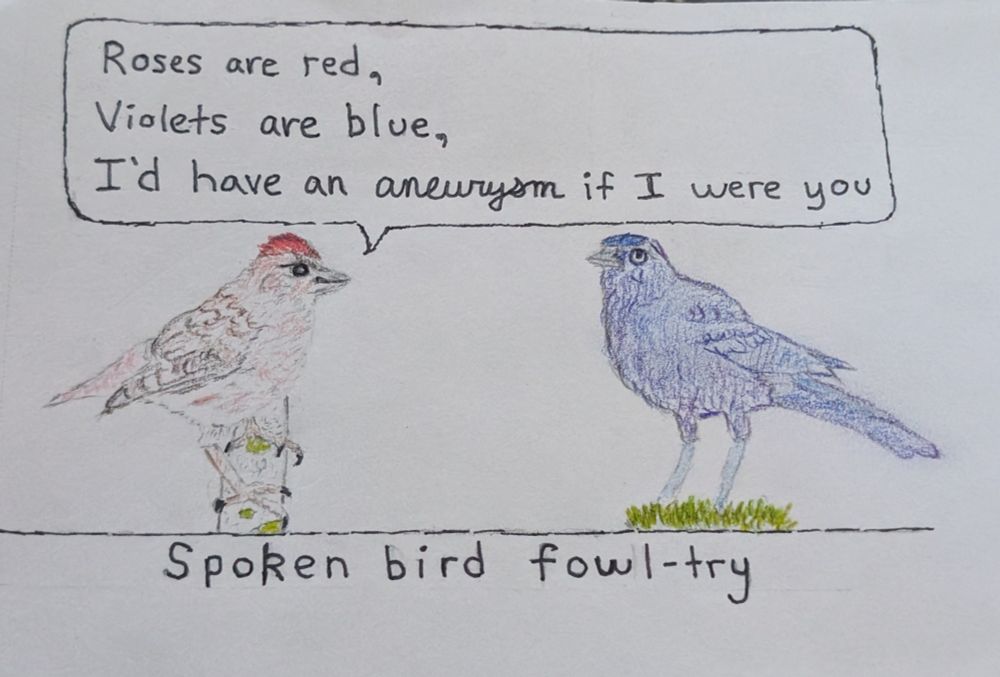 Roses are red,
Violets are blue,
I'd have an aneurysm if I were you
Spoken bird fowl-try